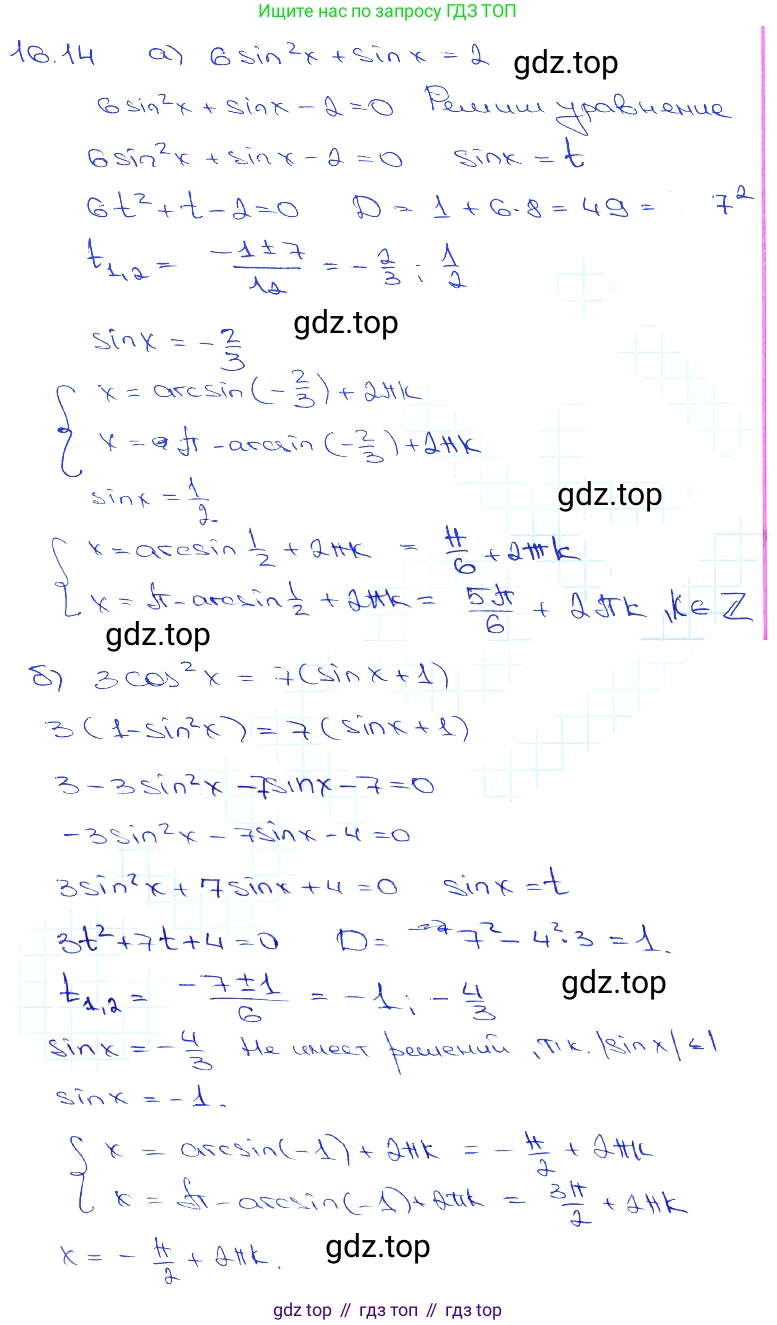 Ищите нас по запросу ГДЗ ТОП
16.14 а) 6sin²x + sinx = 2
gdz.top
6sin²x + sinx - 2 = 0 Решим уравнение
6sin²x + sinx - 2 = 0 sinx = t
6t² + t - 2 = 0 D = 1 + 6·8 = 49 = 7²
t₁,₂ = (-1 ± 7)/12 = -2/3 ; 1/2
gdz.top
sinx = -2/3
{ x = arcsin(-2/3) + 2πk
x = π - arcsin(-2/3) + 2πk
sinx = 1/2
gdz.top
{ x = arcsin 1/2 + 2πk = π/6 + 2πk
x = π - arcsin 1/2 + 2πk = 5π/6 + 2πk, k ∈ Z
gdz.top
б) 3cos²x = 7(sinx + 1)
3(1 - sin²x) = 7(sinx + 1)
3 - 3sin²x - 7sinx - 7 = 0
-3sin²x - 7sinx - 4 = 0
3sin²x + 7sinx + 4 = 0 sinx = t
3t² + 7t + 4 = 0 D = 7² - 4²·3 = 1.
t₁,₂ = (-7 ± 1)/6 = -1; -4/3
gdz.top
sinx = -4/3 Не имеет решений, т.к. |sinx| ≤ 1
sinx = -1.
{ x = arcsin(-1) + 2πk = -π/2 + 2πk
x = π - arcsin(-1) + 2πk = 3π/2 + 2πk
x = -π/2 + 2πk.
gdz.top
gdz top // гдз топ // gdz top